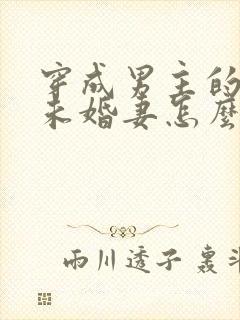 穿成男主的
未婚妻怎麼
雨川透子 裏